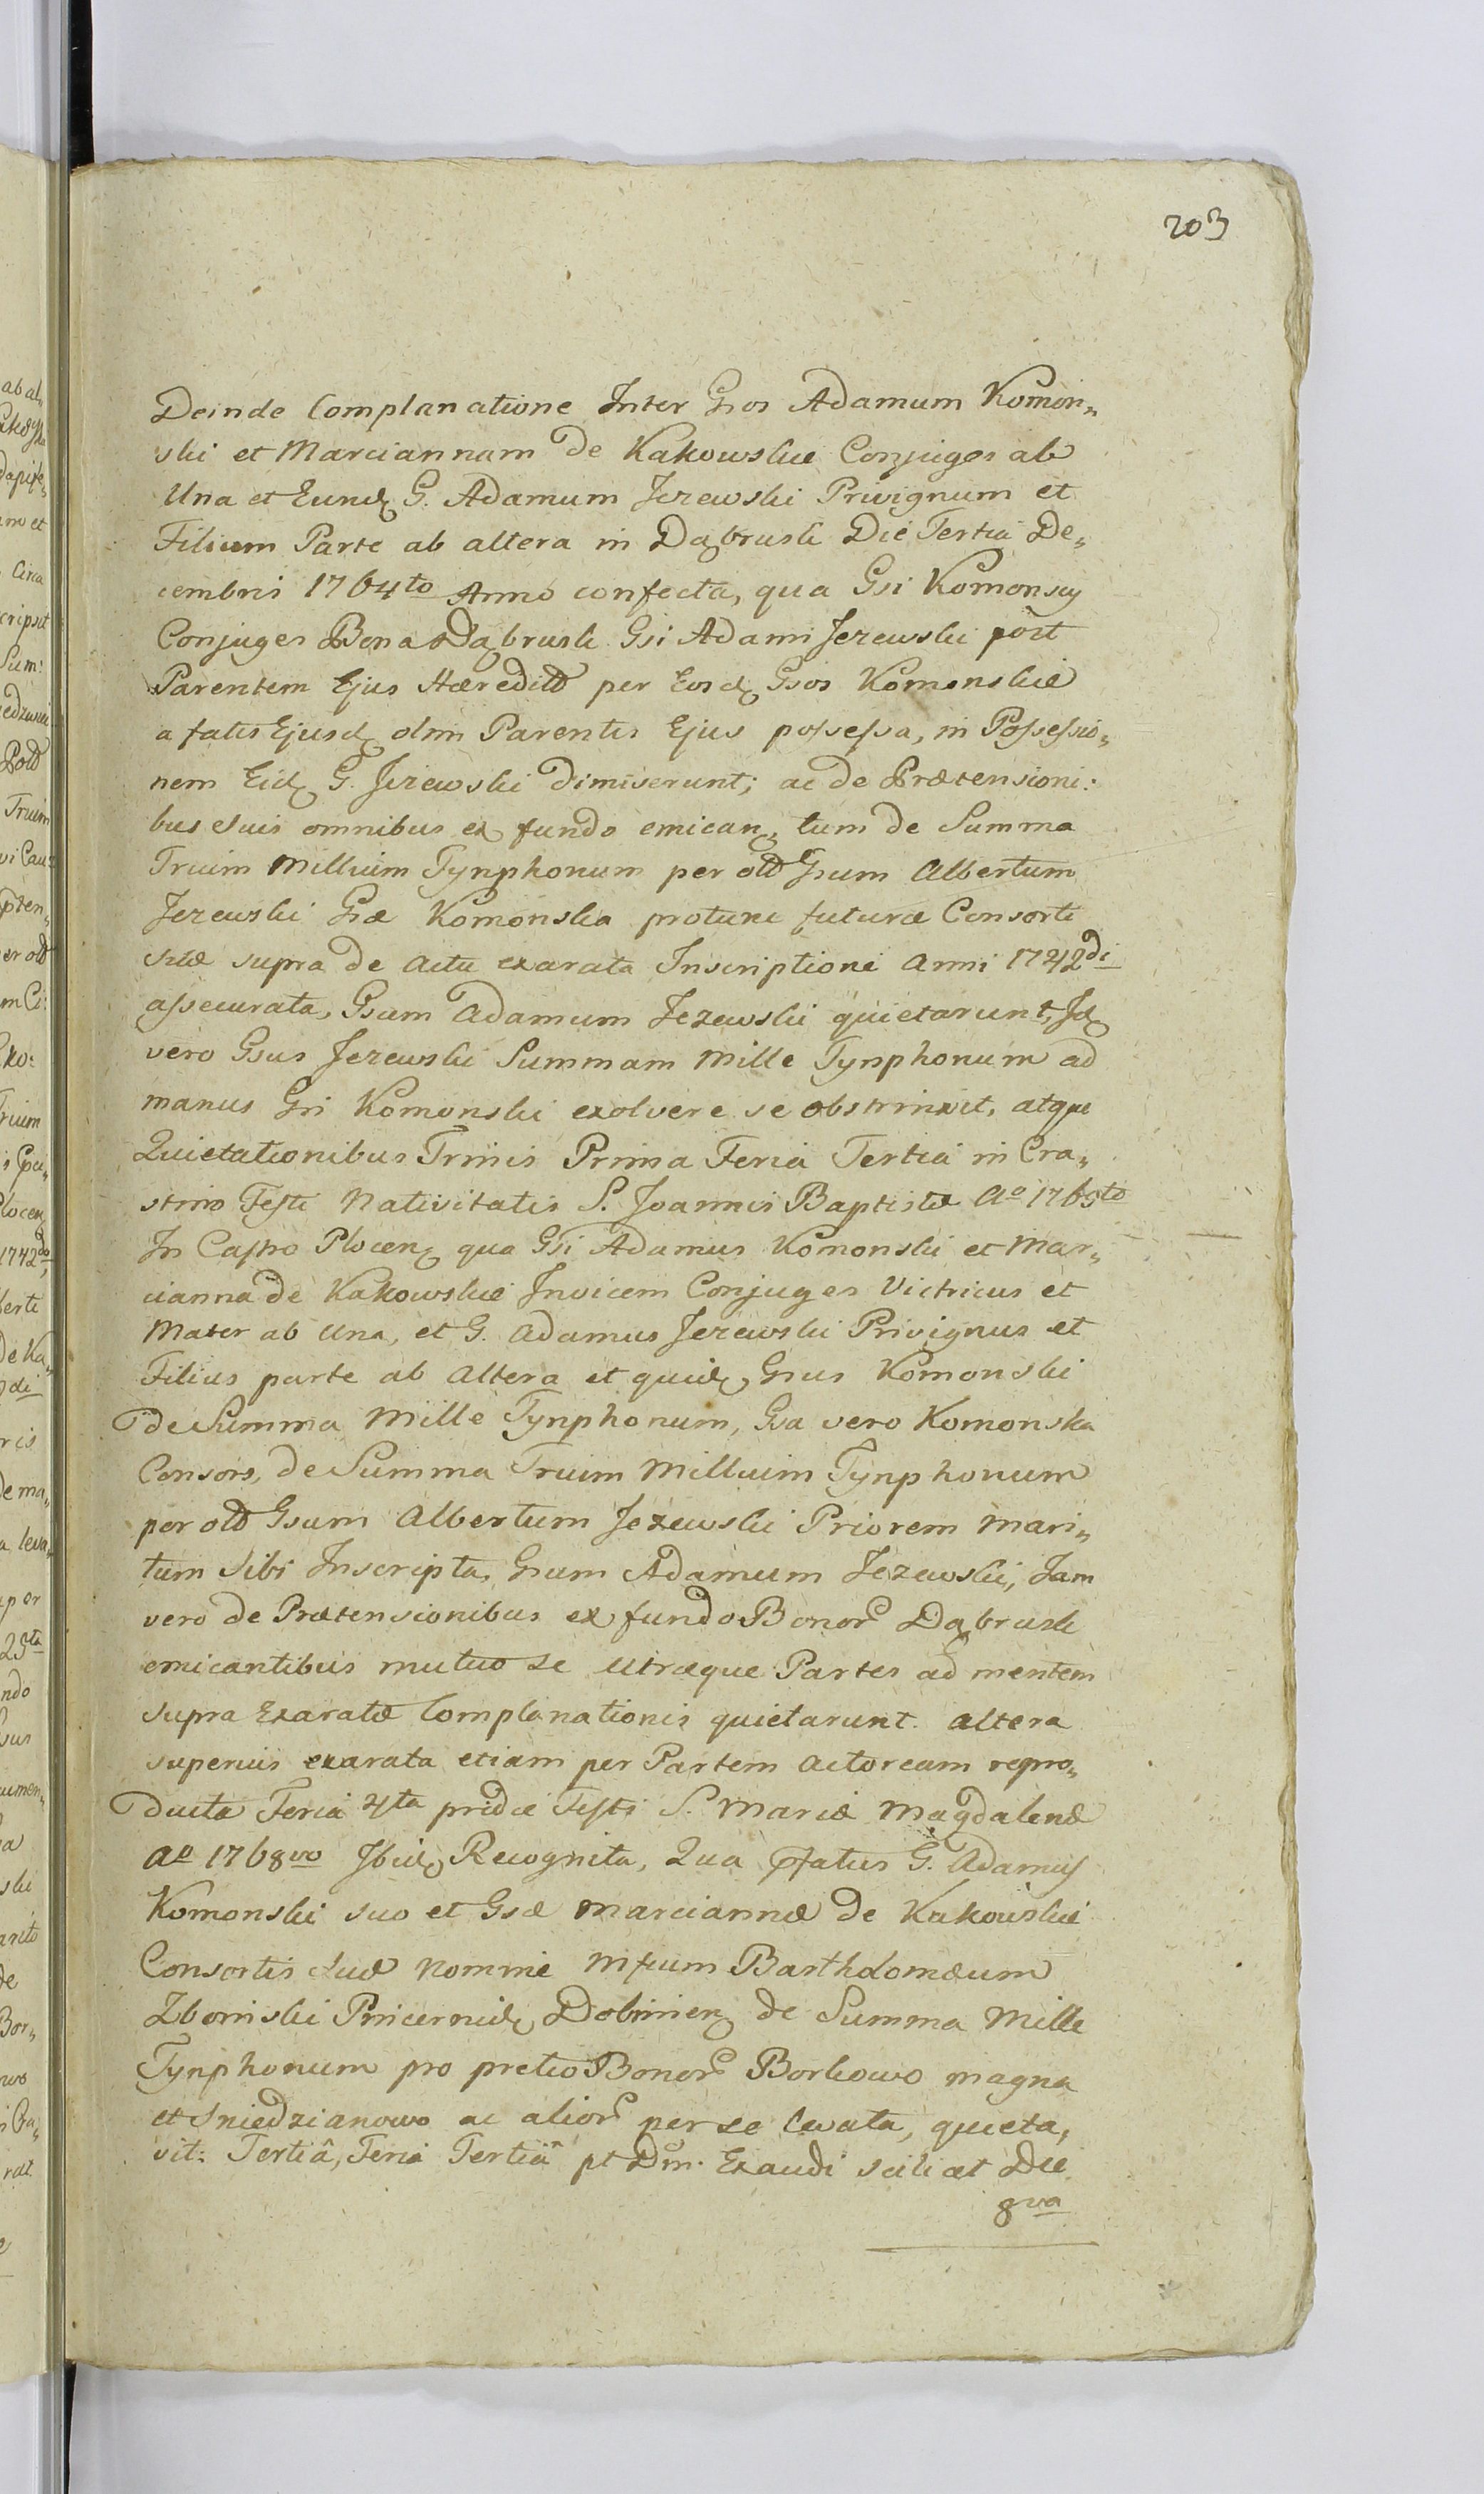 203
Deinde Complanatione Inter Gsos Adamum Komon„
ski et Marciannam de Kakowskie Conjuges ab
Una et Eund. G. Adamum Jezewski Privignum et
Filium Parte ab altera in Dąbrusk Die Tertia De„
cembris 1764to Anno confecta, qua Gsi Komonscy
Conjuges Bona Dąbrusk Gsi Adami Jezewski post
Parentem Ejus Hæredit per Eosd. Gsos Komonskie
a fatis Ejusd. olim Parentis Ejus possessa, in Possessio„
nem Eid. G. Jezewski dimiserunt; ac de Prætensioni:
bus suis omnibus ex fundo emican. tum de Summa
Trium Millium Tynphonum per old Gsum Albertum
Jezewski Gsæ Komonska protunc futuræ Consorti
suæ supra de actu exarata Inscriptione Anni 1742di
assecurata, Gsum Adamum Jezewski quietarunt, Id.
vero Gsus Jezewski Summam Mille Tynphonum ad
manus Gsi Komonski exolvere se obstrinxit, atque
Quietationibus Trinis Prima Feria Tertia in Cra„
stino Festi Nativitatis S. Joannis Baptistæ Ao 1765to
In Castro Plocen. qua Gsi Adamus Komonski et Mar„
cianna de Kakowskie Invicem Conjuges Vitricus et
Mater ab Una, et G. Adamus Jezewski Privignus et
Filius parte ab Altera et quid. Gsus Komonski
de Summa Mille Tynphonum, Gsa vero Komonska
Consors, de Summa Trium Millium Tynphonum
per old Gsum Albertum Jezewski Priorem Mari„
tum sibi Inscripta, Gsum Adamum Jezewski, Jam
vero de Prætensionibus ex fundo Bonor Dąbrusk
emicantibus mutuo se utræque Partes ad mentem
supra Exaratæ Complanationis quietarunt. altera
superius exarata etiam per Partem Actoream repro„
ducta Feria 4ta pridie Festi S. Mariæ Magdalenæ
Ao 1768vo Ibid. Recognita, Qua pfatus G. Adamus
Komonski suo et Gsæ Marciannæ de Kakowskie
Consortis suæ Nomine Mfcum Bartholomæum
Zboinski Pincernid. Dobrinen. de Summa Mille
Tynphonum pro pretio Bonor Borkowo magna
et Sniedzianowo ac alior per se levata, quieta„
vit: Tertiâ, Feria Tertiâ pt Dm. Exaudi scilicet Die
8va